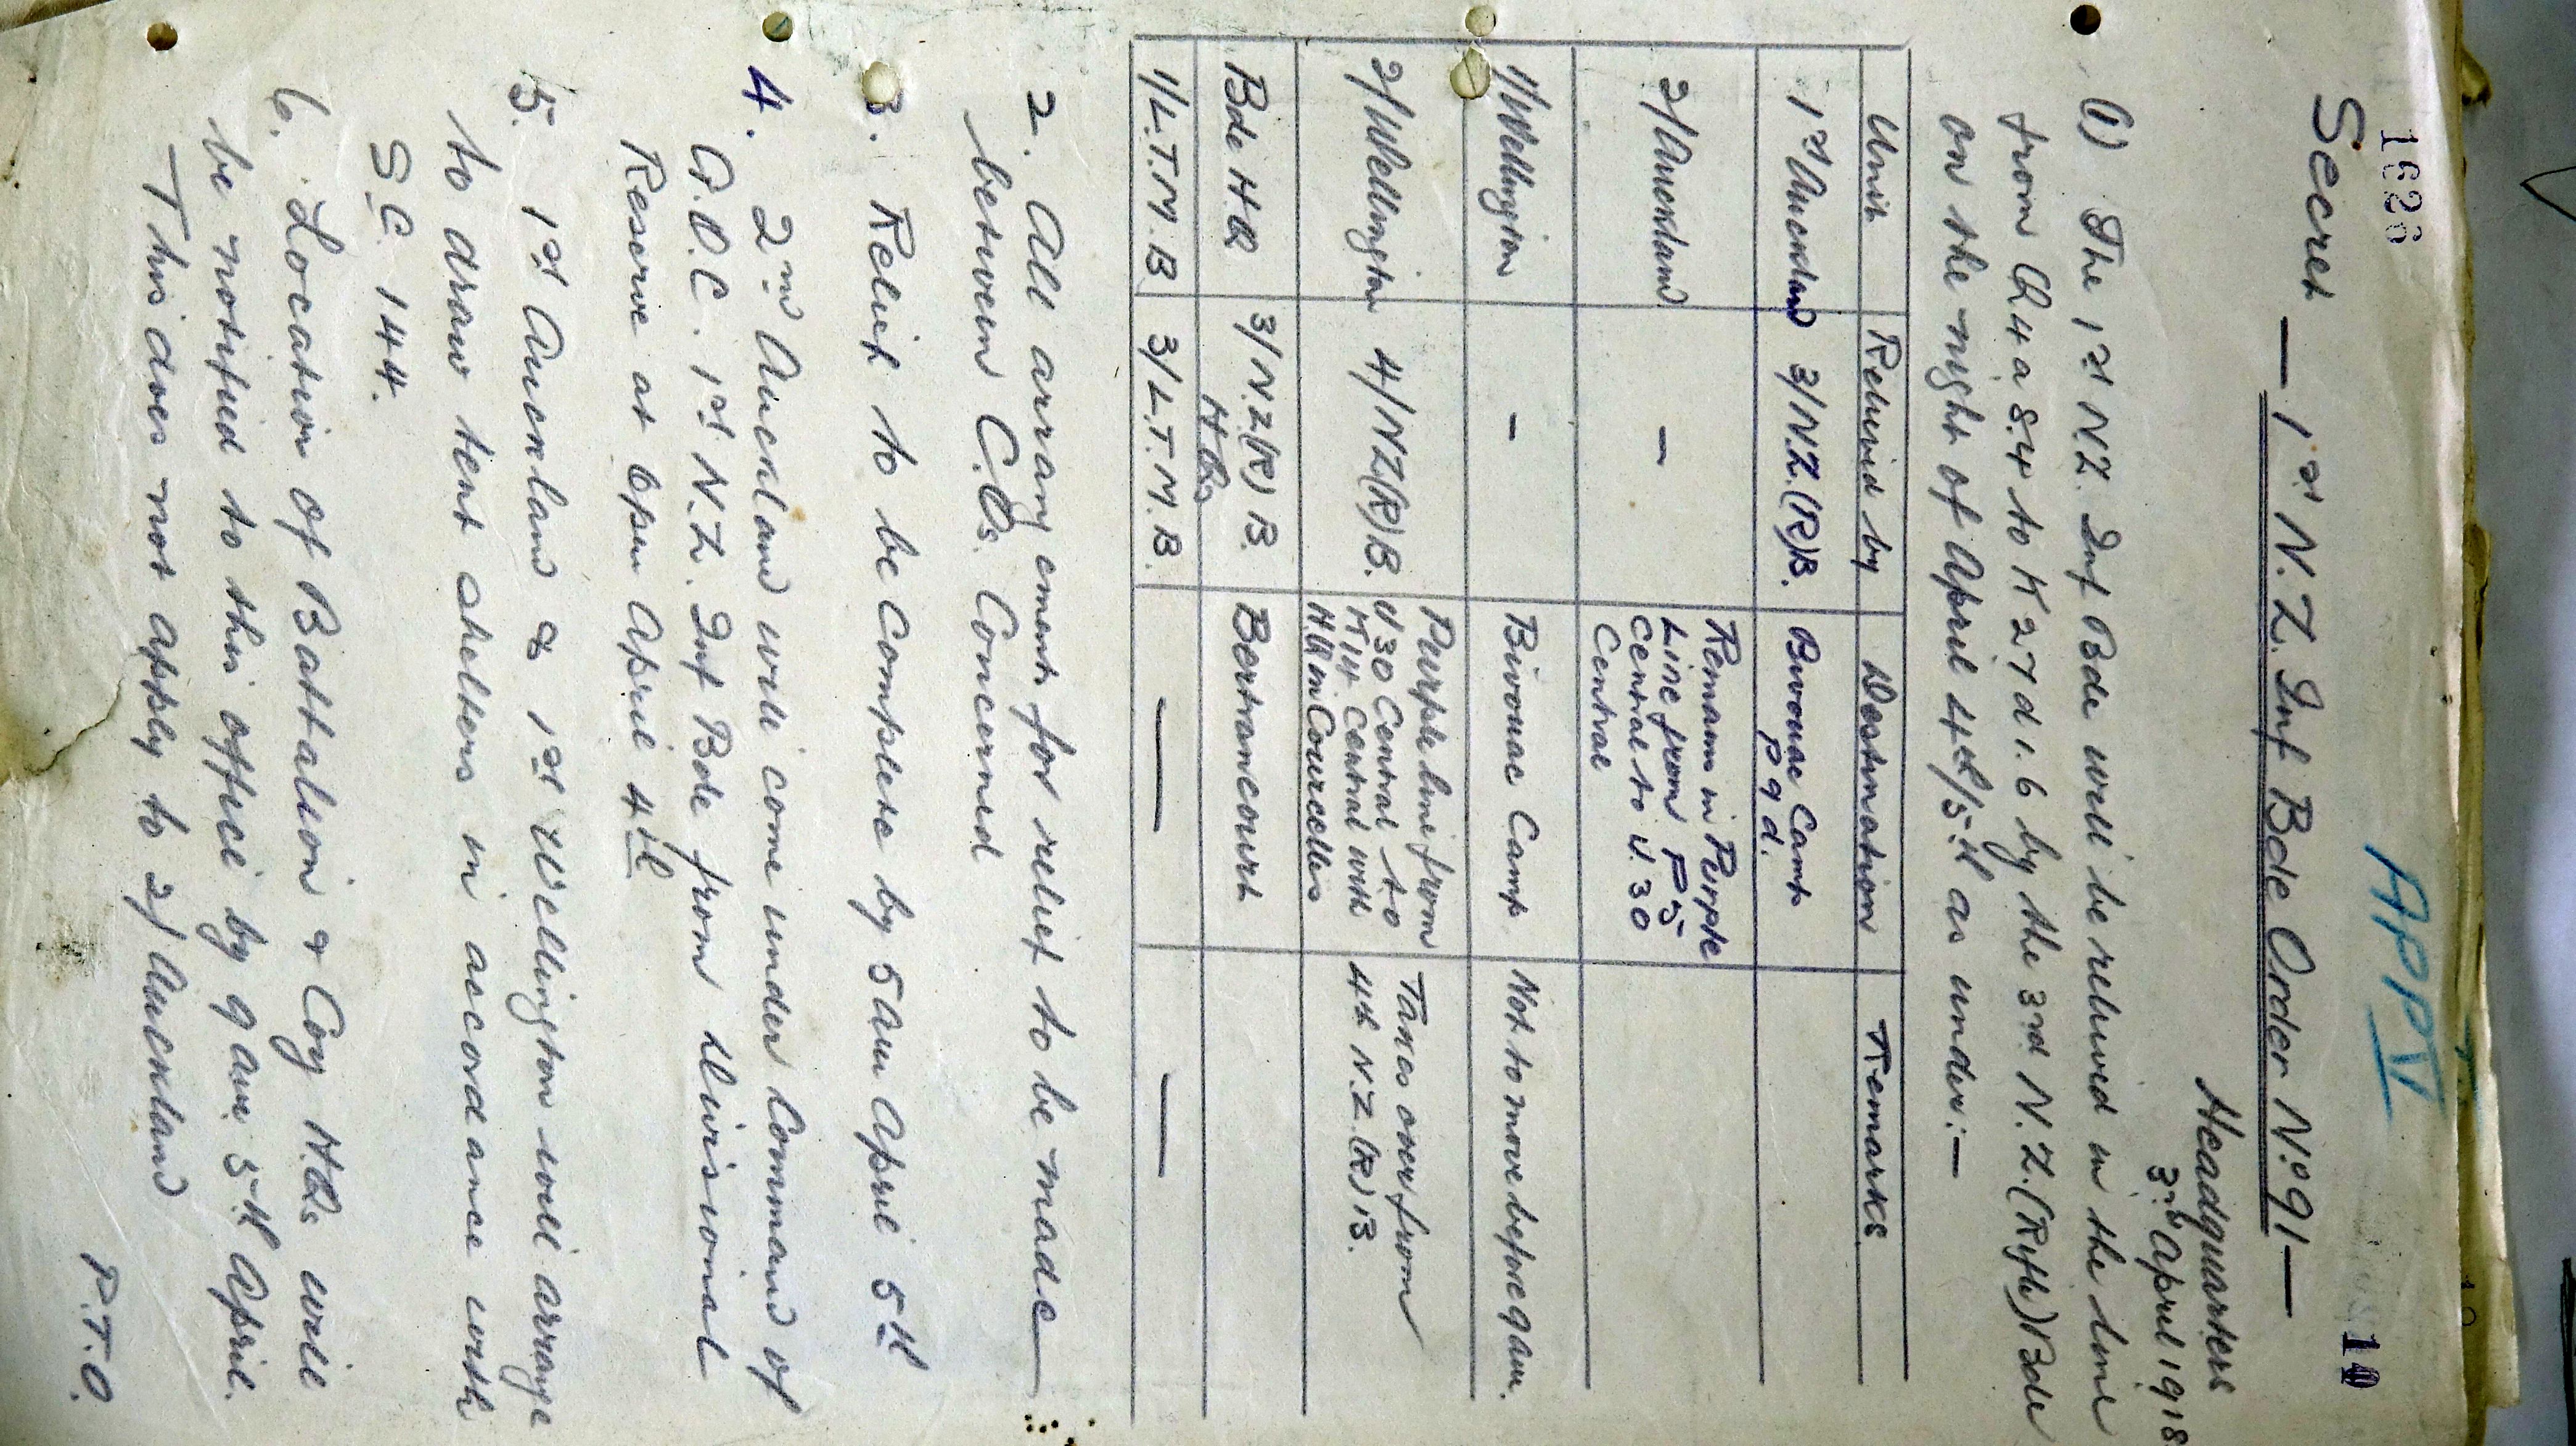 1626
APP V
10
Secret — 1st N.Z. Inf Bde Order No. 91 —
Headquarters
3rd April 1918
(1) The 1st N.Z. Inf Bde will be relieved in the line
from Q4a 8.4 to K27d 1.6 by the 3rd N.Z. (Rfle) Bde
on the night of April 4th/5th as under:—
Unit Relieved by Destination Remarks
1st Auckland 3/N.Z.(R)B. Bivouac Camp
P 9 d.
2/Auckland — Remain in Purple
Line from P 5
Central to J. 30
Central
1/Wellington — Bivouac Camp Not to move before 9 am.
2/Wellington 4/NZ(R)B. Purple line from Takes over from
J 30 Central to 4th N.Z.(R)B.
K 14 Central with
HQ in Courcelles
Bde H.Q 3/N.Z.(R)B. Bertrancourt
H.Qs
1/L.T.M.B 3/L.T.M.B. — —
2. All arrangements for relief to be made
between C.Os. Concerned
3. Relief to be Complete by 5 am April 5th
4. 2nd Auckland will come under Command of
G.O.C. 1st N.Z. Inf Bde from Divisional
Reserve at 6pm April 4th
5. 1st Auckland & 1st Wellington will arrange
to draw tent shelters in accordance with
S.C. 144.
6. Location of Battalion & Coy H.Qs will
be notified to this office by 9 am 5th April.
— This does not apply to 2/Auckland
P.T.O.